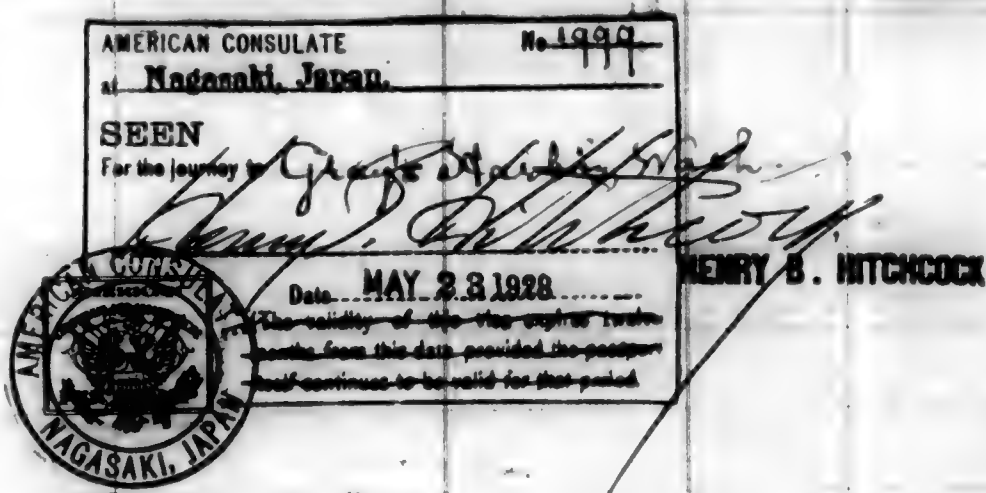 AMERICAN CONSULATE No. 1999
at Nagasaki, Japan.
SEEN
For the journey to Gray's Harbor, Wash.
Henry B. Hitchcock
HENRY B. HITCHCOCK
Date MAY 23 1928
(The validity of this visa expires twelve
months from this date provided the passport
itself continues to be valid for that period.
AMERICAN CONSULATE
NAGASAKI, JAPAN